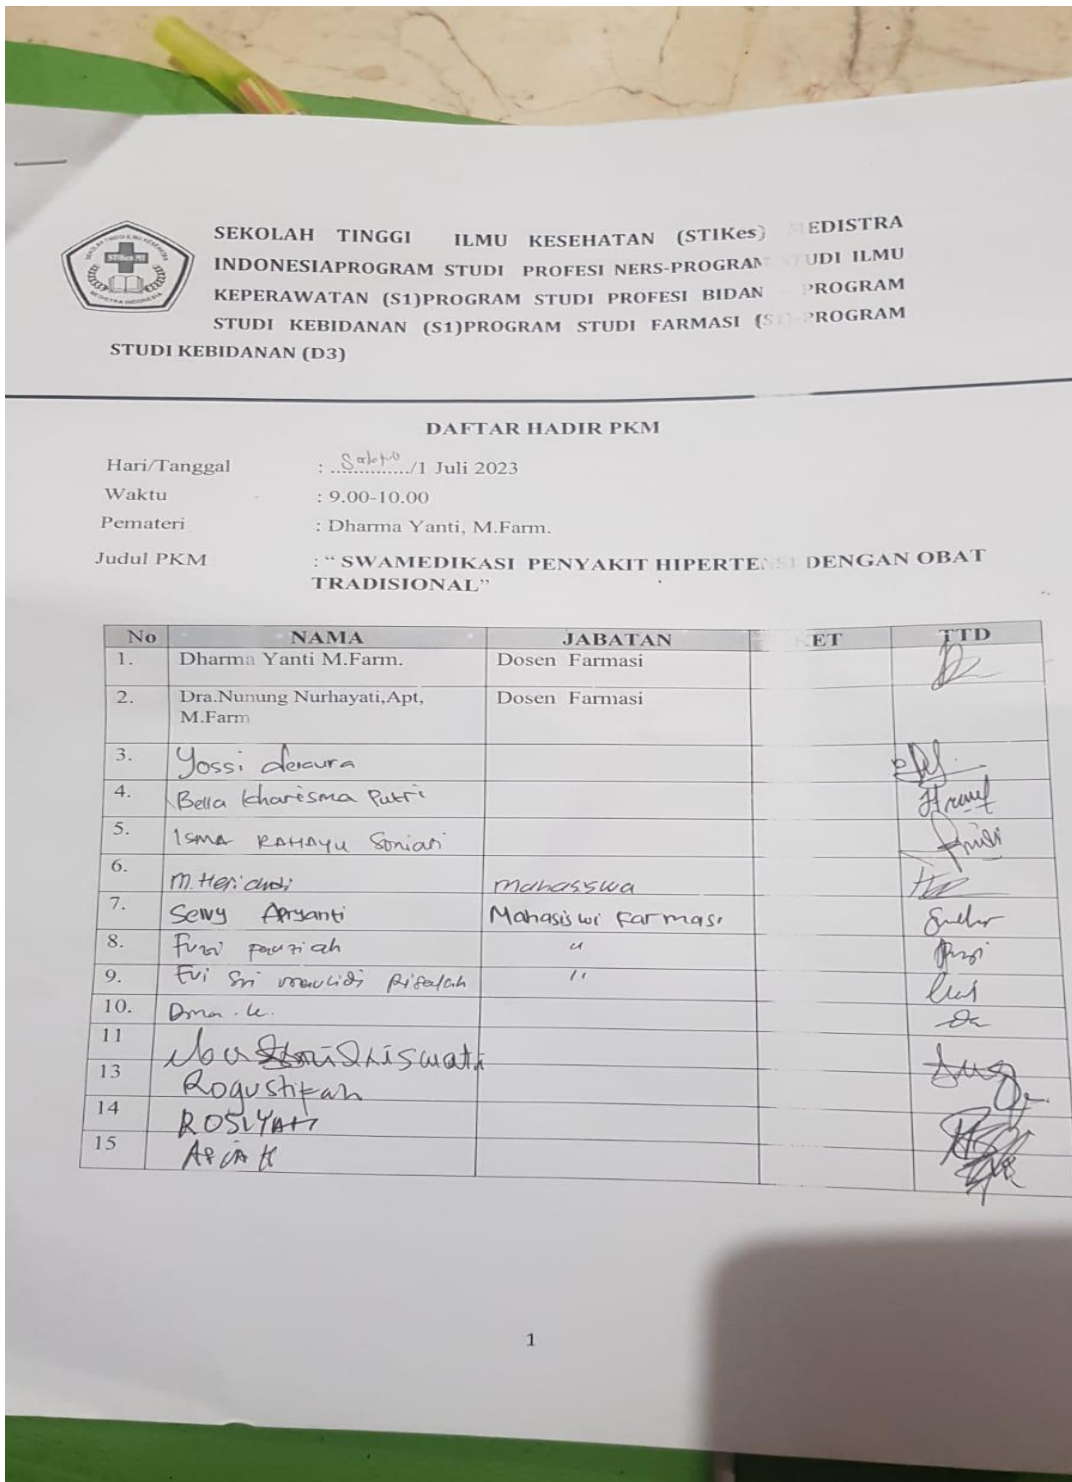 SEKOLAH TINGGI ILMU KESEHATAN (STIKes) MEDISTRA
INDONESIAPROGRAM STUDI PROFESI NERS-PROGRAM STUDI ILMU
KEPERAWATAN (S1)PROGRAM STUDI PROFESI BIDAN PROGRAM
STUDI KEBIDANAN (S1)PROGRAM STUDI FARMASI (S1)-PROGRAM
STUDI KEBIDANAN (D3)
STIKes MI
DAFTAR HADIR PKM
Hari/Tanggal : Sabtu/1 Juli 2023
Waktu : 9.00-10.00
Pemateri : Dharma Yanti, M.Farm.
Judul PKM : “ SWAMEDIKASI PENYAKIT HIPERTENSI DENGAN OBAT
TRADISIONAL”
No NAMA JABATAN KET TTD
1. Dharma Yanti M.Farm. Dosen Farmasi
2. Dra.Nunung Nurhayati,Apt, Dosen Farmasi
M.Farm
3. Yossi
4. Bella Kharisma Putri
5. Isma RAHAYU
6. M. mahasswa
7. Sewy Apryanti Mahasiswi Farmasi
8. Fuzi Fauziah "
9. Evi Sri maulidi Risalah "
10.
11
13
14 ROSIYATI
15
1